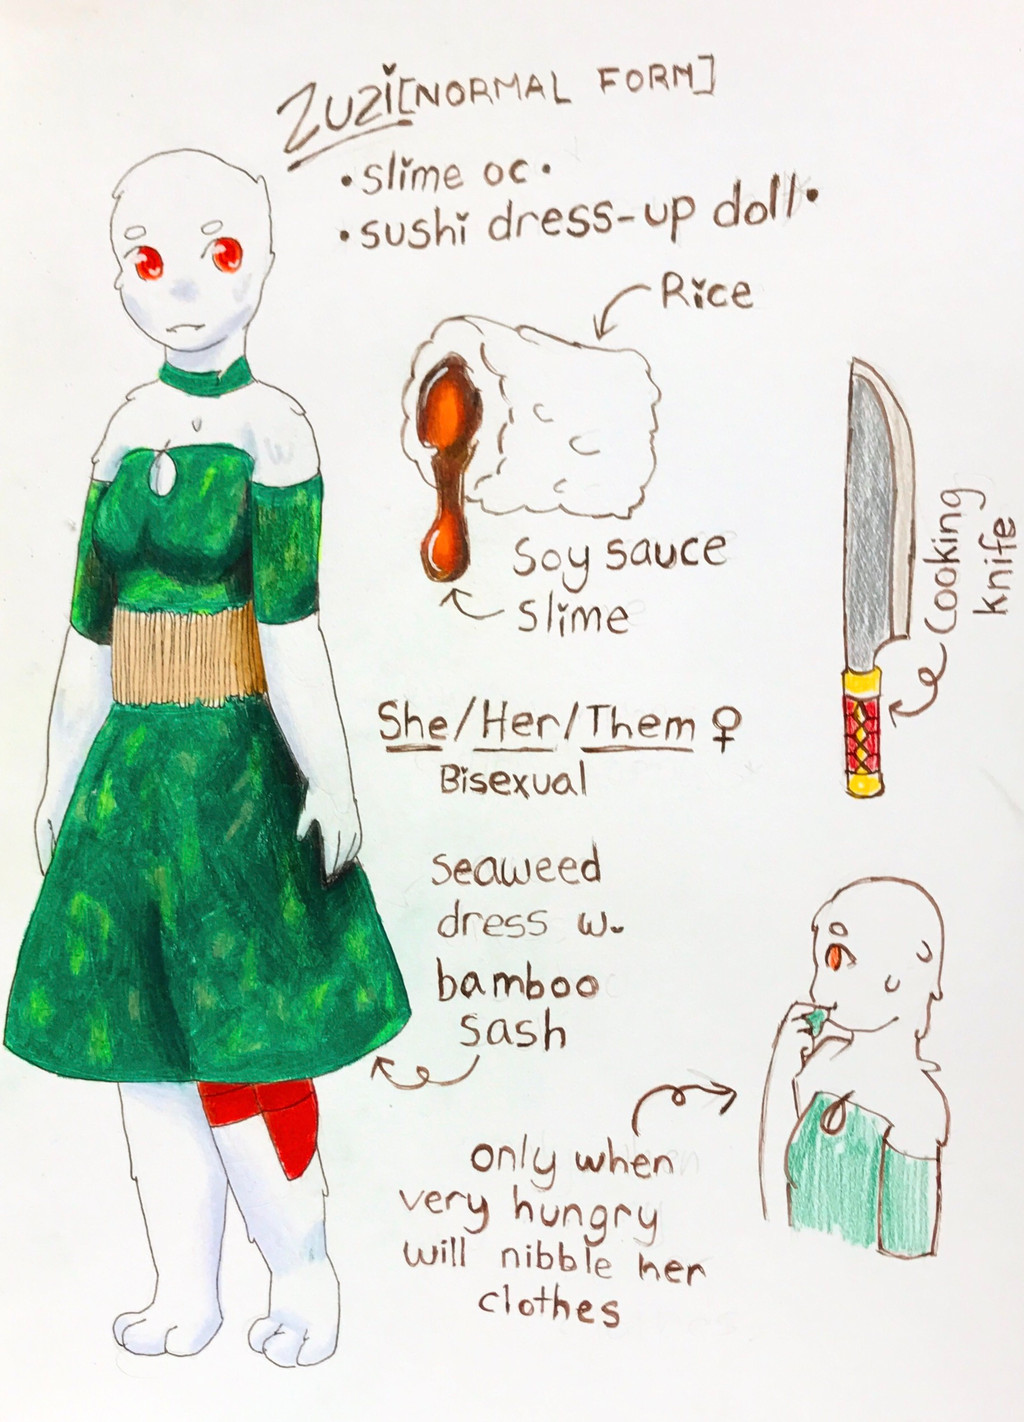 Zuzi [NORMAL FORM]
• slime oc •
• sushi dress-up doll •
Rice
Soy sauce
slime
Cooking
knife
She/Her/Them ♀
Bisexual
seaweed
dress w.
bamboo
sash
only when
very hungry
will nibble her
clothes